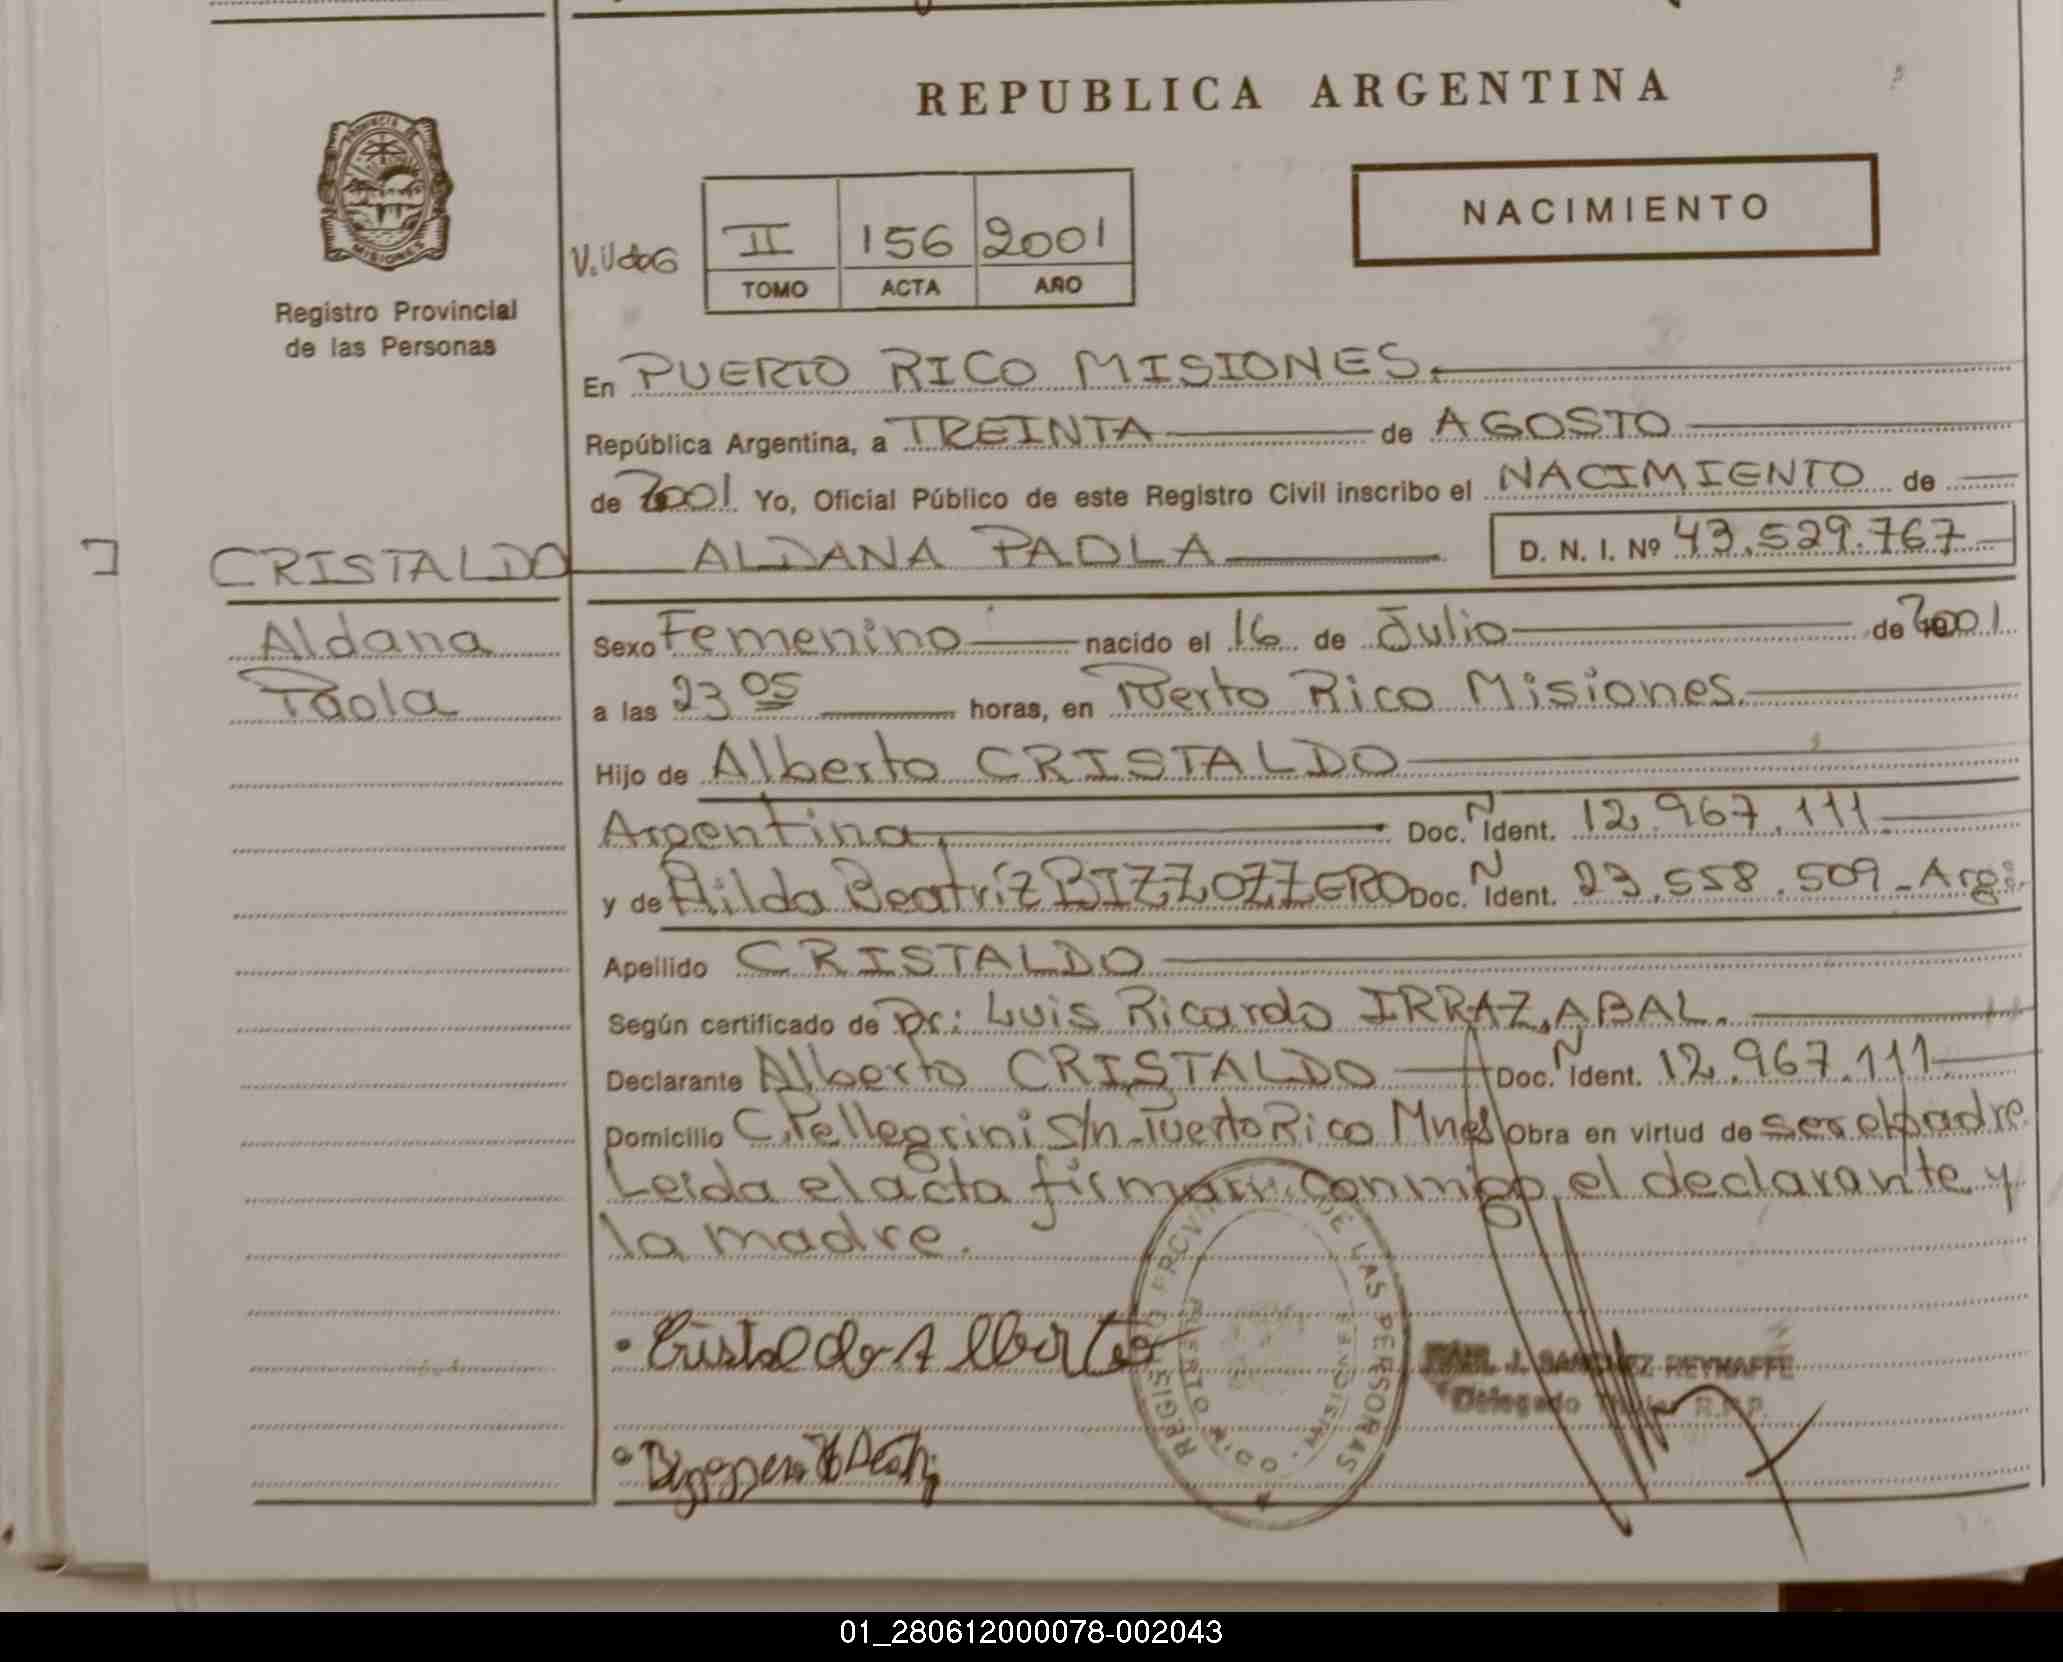 REPUBLICA ARGENTINA
PROVINCIA DE
MISIONES
Registro Provincial
de las Personas
NACIMIENTO
II 156 2001
TOMO ACTA AÑO
En PUERTO RICO MISIONES.
República Argentina, a TREINTA de AGOSTO
de 2001 Yo, Oficial Público de este Registro Civil inscribo el NACIMIENTO de
CRISTALDO ALDANA PAOLA D. N. I. Nº 43.529.767
Aldana
Paola
Sexo Femenino nacido el 16 de Julio de 2001
a las 23 05 horas, en Puerto Rico Misiones.
Hijo de Alberto CRISTALDO
Argentina, Doc. Ñ Ident. 12.967.111.
y de Hilda Beatríz BIZZOZZERO Doc. Ñ Ident. 23.558.509 - Arg.
Apellido CRISTALDO
Según certificado de Dr: Luis Ricardo IRRAZABAL.
Declarante Alberto CRISTALDO Doc. Ñ Ident. 12.967.111
Domicilio C. Pellegrini S/n - Puerto Rico Mnes Obra en virtud de ser el padre
Leida el acta firman conmigo, el declarante y
la madre.
Cristaldo Alberto
REGISTRO PROVINCIAL DE LAS PERSONAS
PUERTO RICO - MISIONES
J. SANCHEZ REYNAFFE
Delegado Titular R.P.P.
01_280612000078-002043